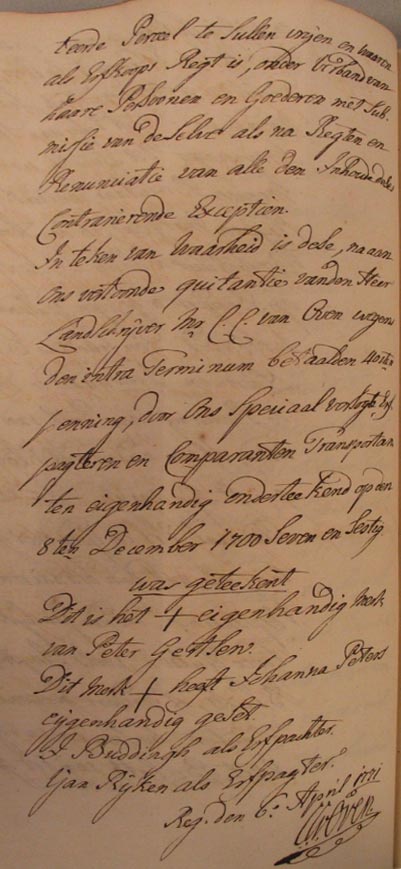 teerde Perceel te sullen vrijen en waaren
als Erfkoops Regt is, onder verband van
haare Persoonen en Goederen met Sub-
missie van deselve als na Regten en
Renunciatie van alle den Inhoude deses
Contrarierende Exceptien.
In teken van Waarheid is dese, na aan
ons vertoonde quitantie van den Heer
Landschrijver Mr. C. C. van Öven wegens
den intra Terminum betaalden 40sten
penning, door ons Speciaal versogte Erf-
pagteren en Comparanten Transportan-
ten eigenhandig onderteekend op den
8ten December 1700 Seven en Sestig
was geteekent
Dit is het + eigenhandig Merk
van Peter
Dit Merk + heeft Johanna Peters
eigenhandig geset.
J Buddingh als Erfpachter.
Ijan Rijken als Erfpagter.
Reg. den 6. April 1771
C:C:v: Öven